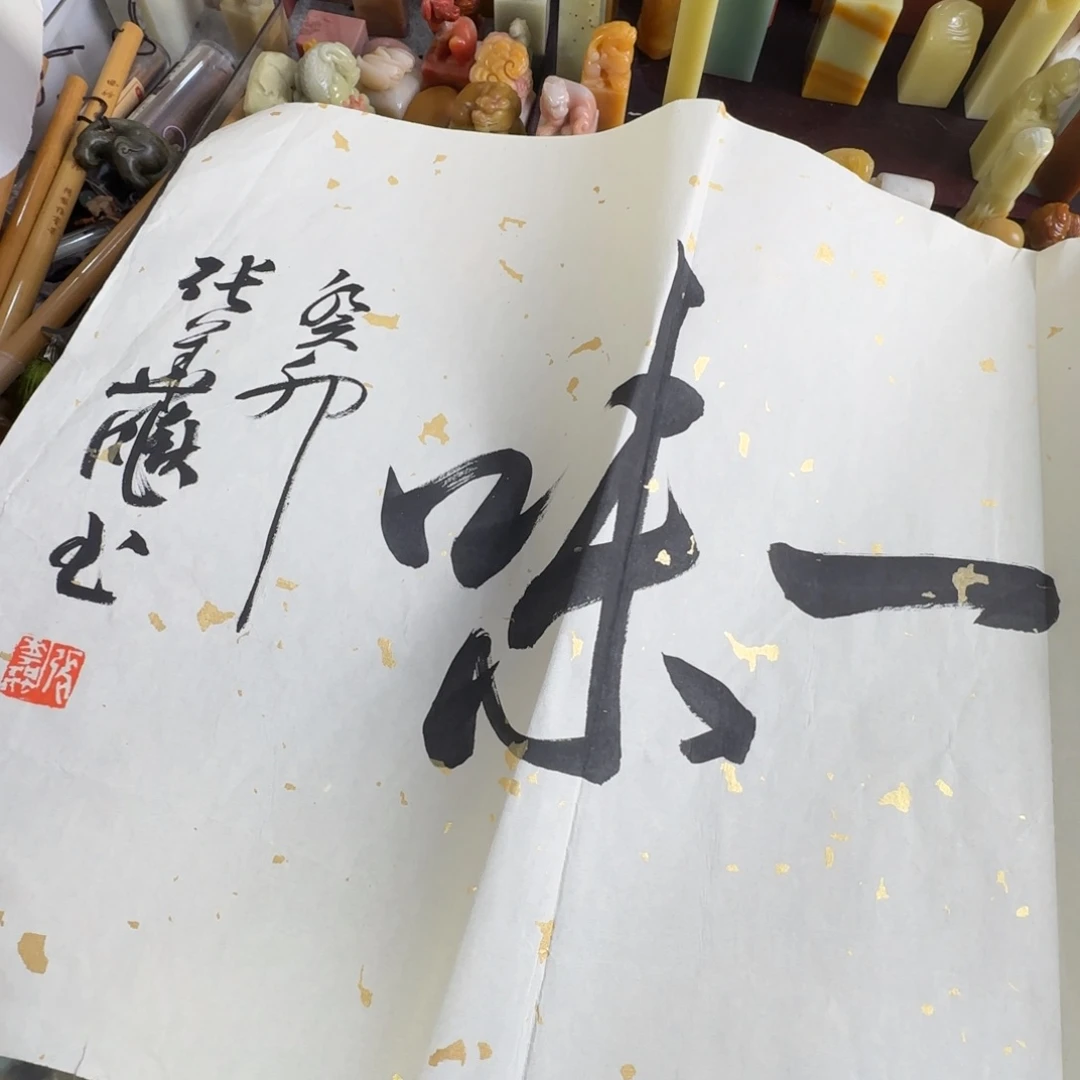 一味
癸卯
张 书